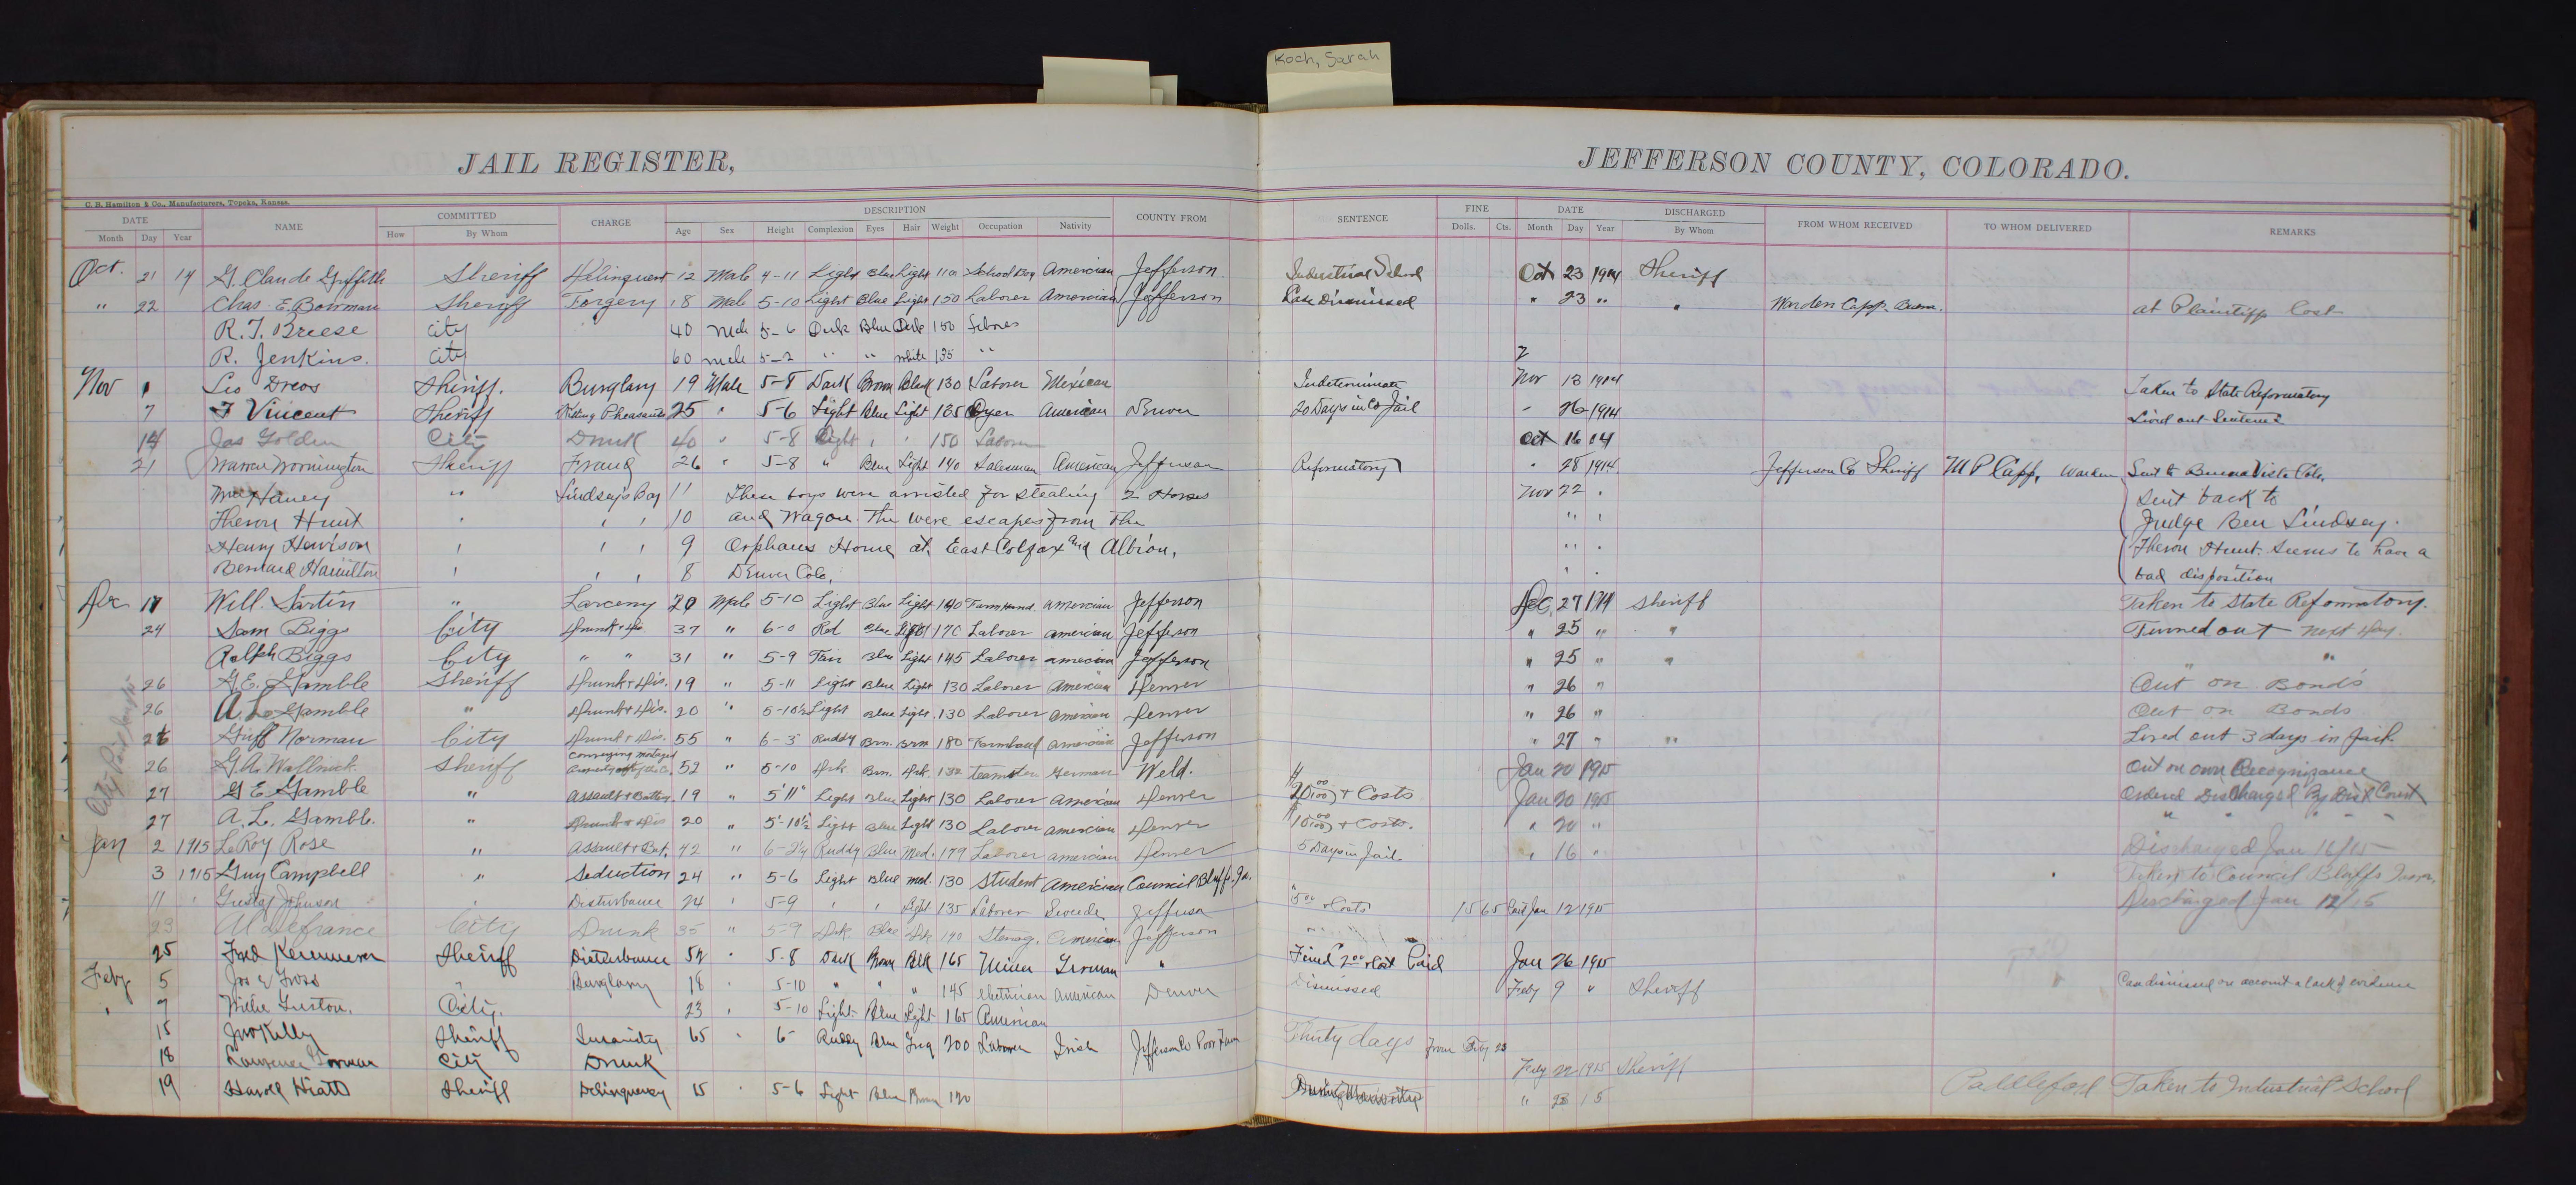 Koch, Sarah
JAIL REGISTER,
JEFFERSON COUNTY, COLORADO.
C. B. Hamilton & Co., Manufacturers, Topeka, Kansas.
DATE NAME COMMITTED CHARGE DESCRIPTION COUNTY FROM SENTENCE FINE DATE DISCHARGED FROM WHOM RECEIVED TO WHOM DELIVERED REMARKS
Month Day Year How By Whom Age Sex Height Complexion Eyes Hair Weight Occupation Nativity Dolls. Cts. Month Day Year By Whom
Oct. 21 14 G. Claude Griffith Sheriff Delinquent 12 Male 4-11 Light Blue Light 110 School Boy Amercian Jefferson Industrial School Oct 23 1914 Sheriff
" 22 Chas. E. Bowman Sheriff Forgery 18 Male 5-10 Light Blue Light 150 Laborer Amercian Jefferson Case Dismissed " 23 " " Warden Capp. at Plaintiffs Cost
R. T. Breese City 40 Male 5-6 Dark Blue Dark 150
R. Jenkins. City 60 male 5-2 " " white 135 "
Nov Leo Sheriff. Burglary 19 Male 5-8 Dark Brown Black 130 Laborer Mexican Indeterminate Nov 13 1914 Taken to State Reformatory
7 Vincent Sheriff Killing Pheasants 25 " 5-6 Light Blue Light 135 American Denver 20 Days in Co Jail - 26 1914 Lived out Sentence
14 Jas Golden City Drunk 40 " 5-8 Light " " 150 Laborer Oct 16 14
21 Warren Sheriff Fraud 26 " 5-8 " Blue Light 140 Salesman American Jefferson Reformatory " 28 1914 Jefferson Co Sheriff M P Capp, Warden Sent to Buena Vista Colo.
Haney " Lindsey's Boy 11 These boys were arrested for stealing 2 Horses Nov 22 " Sent back to
Theron Hunt " " " 10 and Wagon. The were escapes from the " " Judge Ben Lindsey.
Henry Hewison " " " 9 Orphans Home at East Colfax and Albion, " " Theron Hunt. Seems to have a
Bernard Hamilton " " " 8 Denver Colo. " " bad disposition
Dec 17 Will. Sartin " Larceny 20 Male 5-10 Light Blue Light 140 Farm Hand Amercian Jefferson Dec. 27 1914 Sheriff Taken to State Reformatory.
24 Sam Biggs City 37 " 6-0 Red Blue Light 170 Laborer american Jefferson " 25 " " Turned out next Day.
Ralph Biggs City " " 31 " 5-9 Fair Blue Light 145 Laborer amercian Jefferson " 25 " " "
26 G.E. Gamble Sheriff Drunk + Dis. 19 " 5-11 Light Blue Light 130 Laborer Amercian Denver " 26 " Out on Bonds
26 A. L. Gamble " Drunk + Dis. 20 " 5-10½ Light Blue Light. 130 Laborer Amercian Denver " 26 " Out on Bonds
26 Griff Norman City Drunk + Dis. 55 " 6-3 Ruddy Brn. Brn 180 Farmhand amercian Jefferson " 27 " " Lived out 3 days in Jail.
26 G.A. Sheriff Conveying 52 " 5-10 Drk Brn. Drk. 132 teamster German Weld. Jan 20 1915 Out on own Recognizance
27 G E Gamble " Assault + Battery. 19 " 5'11" Light Blue Light 130 Laborer Amercian Denver 20 00/100 + Costs Jan 20 1915 Ordered Discharged By Dist Court
27 A. L. Gamble. " Drunk + Dis 20 " 5'-10½ Light Blue Light 130 Laborer amercian Denver 10 00/100 + Costs. " 20 " " " " "
City Paid
Jan 2 1915 LeRoy Rose " Assault + Bat. 42 " 6-2¼ Ruddy Blue Med. 179 Laborer amercian Denver 5 Days in Jail. " 16 " Discharged Jan 16/15
3 1915 Guy Campbell " Seduction 24 " 5-6 Light Blue med. 130 Student American Council Bluffs. Ia. Taken to Council Bluffs
11 " Gustaf Johnson " Disturbance 24 " 5-9 " " Light 135 Laborer Swede Jefferson 5 00 + Costs 15 65 Jan 12 1915 Discharged Jan 12/15
23 Al Defrance City Drunk 35 " 5-9 Drk Blue Drk 140 Stenog. Amercian Jefferson
25 Fred Sheriff Disturbance 52 " 5-8 Dark Brown Blk 165 Miner German " Fined 2 00 + Cost Paid Jan 26 1915
Feby 5 Jas E Goss " Burglary 18 " 5-10 " " " 145 electrician American Denver Dismissed Feby 9 " Sheriff Case dismissed on account a lack of evidence
" 7 Willie City. 23 " 5-10 Light Blue Light 165 American
15 Jno Kelly Sheriff Insanity 65 " 6- Ruddy Blue 200 Laborer Irish Jefferson Co Poor Farm Thirty days from Feby 23
18 Lawrence City Drunk Feby 22 1915 Sheriff
19 Harold Hiatt Sheriff Delinquency 15 " 5-6 Light Blue Brown 120 During Minority " 23 15 Taken to Industrial School